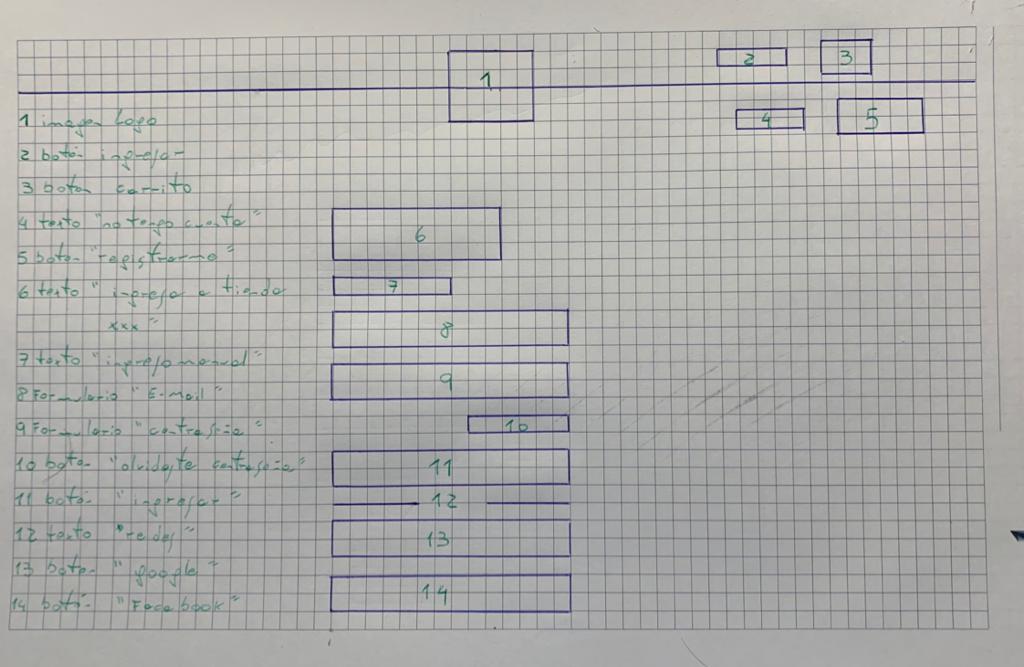 1
2
3
4
5
1 imagen Logo
2 boton ingresar
3 boton carrito
4 texto "no tengo cuenta"
5 boton "registrarme"
6 texto "ingresa a tienda
xxx"
7 texto "ingreso manual"
8 Formulario "E-mail"
9 Formulario "contraseña"
10 boton "olvidaste contraseña"
11 boton "ingresar"
12 texto "redes"
13 boton "google"
14 boton "Facebook"
6
7
8
9
10
11
12
13
14